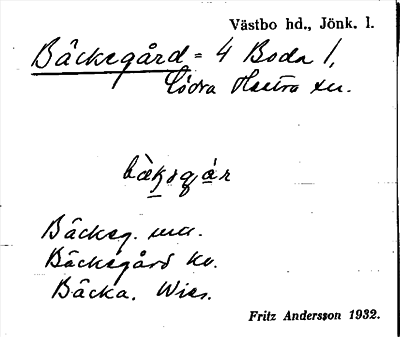 Västbo hd., Jönk. l.
Bäcksgård = 4 Boda 1,
Södra Hestra sn.
Bäcksg. 
Bäcksgård kv.
Bäcka. Wies.
Fritz Andersson 1932.